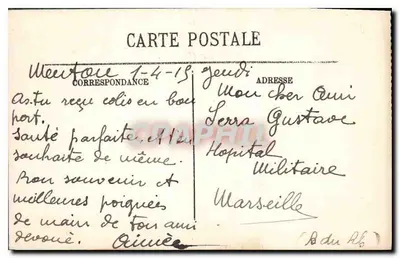 CARTE POSTALE
Menton 1-4-15 jeudi
CORRESPONDANCE
ADRESSE
As-tu reçu colis en bon
port.
Santé parfaite et t'en
souhaite de même.
Bon souvenir et
meilleures poignées
de main de ton ami
dévoué. Aimée
Mon cher Ami
Serra Gustave
Hopital
Militaire
Marseille
(B du Rh)